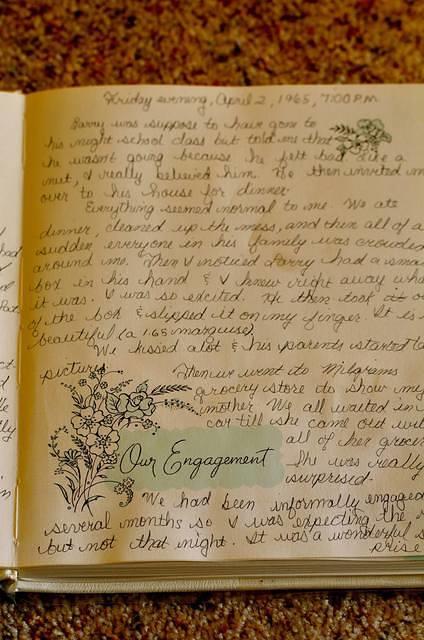 Friday evening, April 2, 1965, 7:00 P.M.
Larry was suppose to have gone to
his night school class but told me that
he wasn't going because he felt bad like a
nut, I really believed him. He then invited m
over to his house for dinner.
Everything seemed normal to me. We ate
dinner, cleaned up the mess, and then all of a
sudden everyone in his family was crowded
around me. Then I noticed Larry had a sma
box in his hand & I knew right away wha
it was. I was so excited. He then took it o
of the box & slipped it on my finger. It is
beautiful (a 1.65 marquise)
We kissed alot & his parents started ta
pictures
Then we went to Milgrams
grocery store to show my
mother. We all waited in
car till she came out wit
all of her groce
She was really
surprised.
Our Engagement
We had been informally engaged
several months so I was expecting the r
but not that night. It was a wonderful s
prise
had